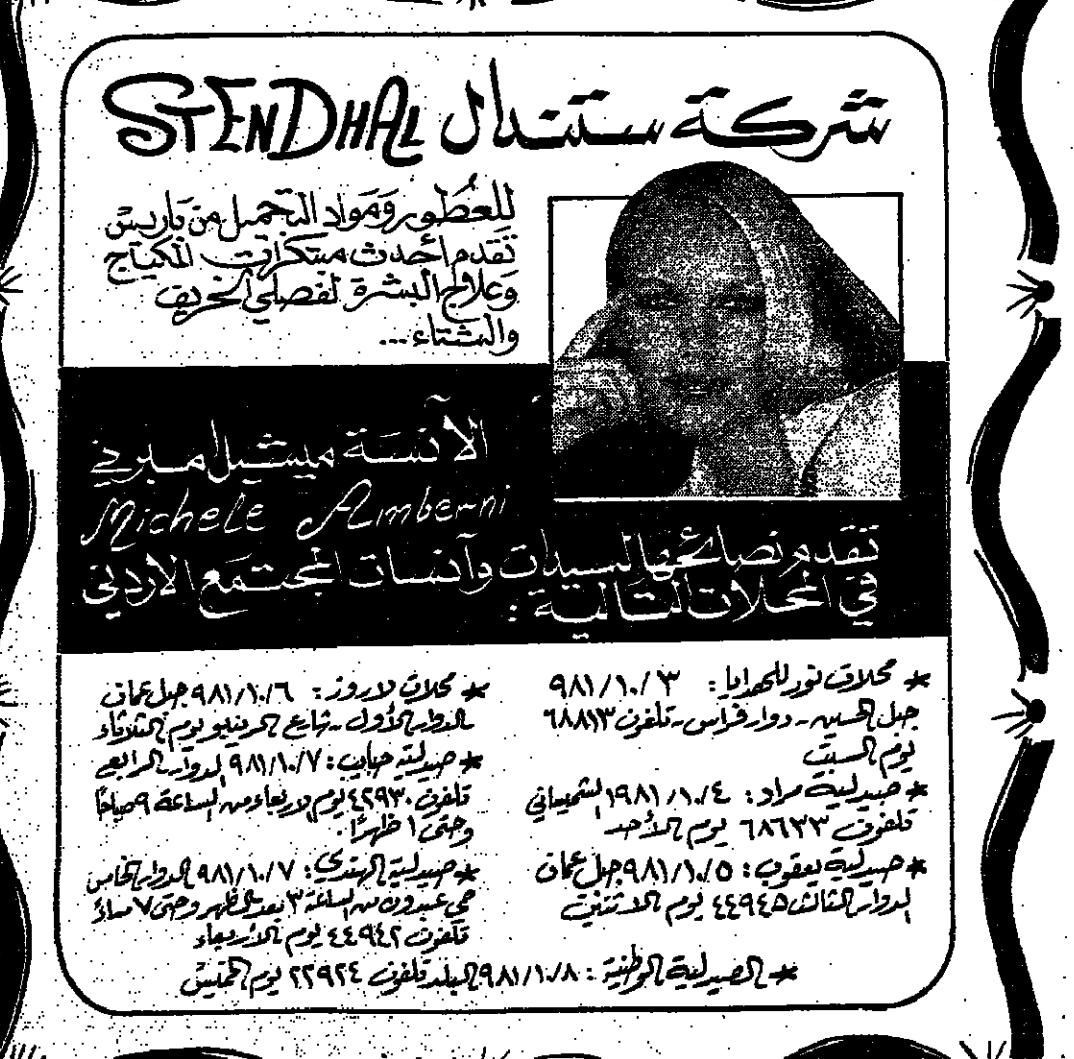 شركة ستندال STENDHAL
للعطور ومواد التجميل من باريس
تقدم أحدث مبتكرات المكياج
وعلاج البشرة لفصلي الخريف
والشتاء...
الآنسة ميشيل مبرني
Michele Amberni
تقدم نصائحها لسيدات وآنسات المجتمع الاردني
في المحلات التالية :
* محلات نور للهدايا : ٩٨١/١٠/٣
جبل الحسين - دوار فراس - تلفون ٦٨٨١٣
يوم السبت
* صيدلية مراد : ١٩٨١/١٠/٤ الشميساني
تلفون ٦٨٦٣٣ يوم الأحد
* صيدلية يعقوب : ٩٨١/١٠/٥ جبل عمان
الدوار الثالث ٤٤٩٤٥ يوم الاثنين
* محلات لاروز : ٩٨١/١٠/٦ جبل عمان
الدوار الأول - شارع الرينبو يوم الثلاثاء
* صيدلية حبايب : ٩٨١/١٠/٧ الدوار الرابع
تلفون ٤٢٩٣٠ يوم الاربعاء من الساعة ٩ صباحًا
وحتى ١ ظهرًا .
* صيدلية الهندي : ٩٨١/١٠/٧ الدوار الخامس
حي عبدون من الساعة ٣ بعد الظهر وحتى ٧ مساءً
تلفون ٤٤٩٤٢ يوم الأربعاء
* الصيدلية الوطنية : ٩٨١/١٠/٨ البلد تلفون ٢٢٩٢٤ يوم الخميس